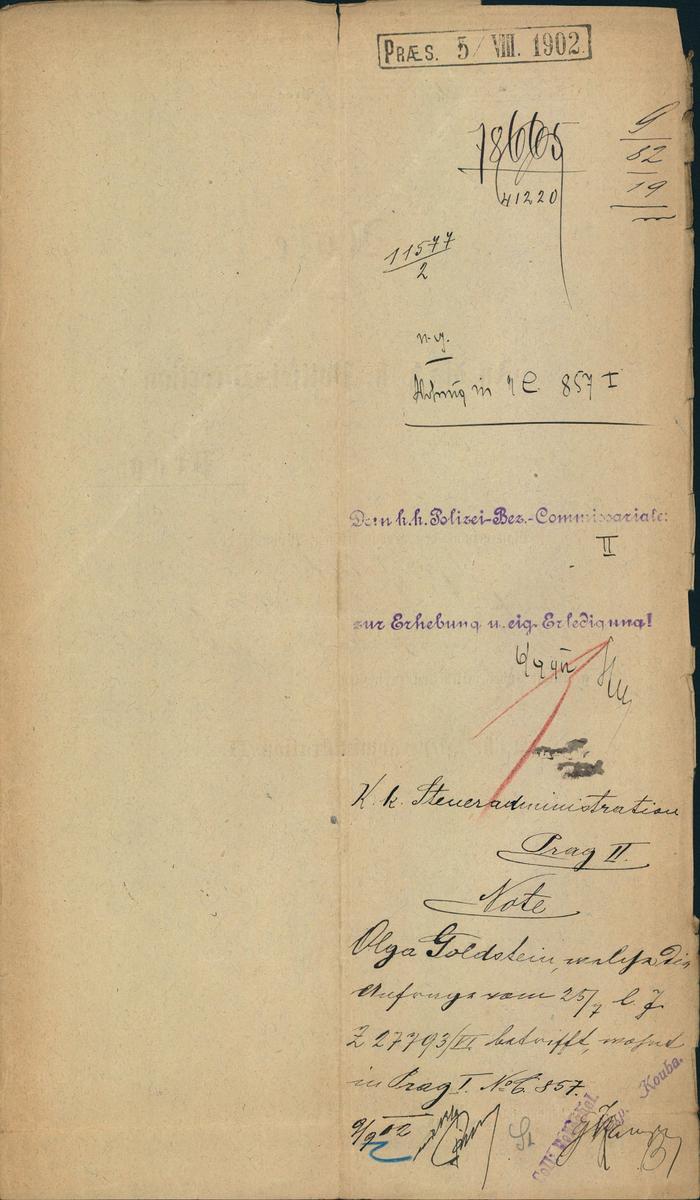 PRÆS. 5/VIII. 1902.
9
82
19
78665
41220
11577
2
n. g.
in N C 857 I
Dem k.k. Polizei-Bez.-Commissariate:
II
zur Erhebung u. eig. Erledigung!
K. k. Steueradministration
Prag II.
Note
Olga Goldstein, welche die
Anfrage vom 25/7 l. J.
Z 27793/VI betrifft, wohnt
in Prag I. N° C. 857.
Kouba.